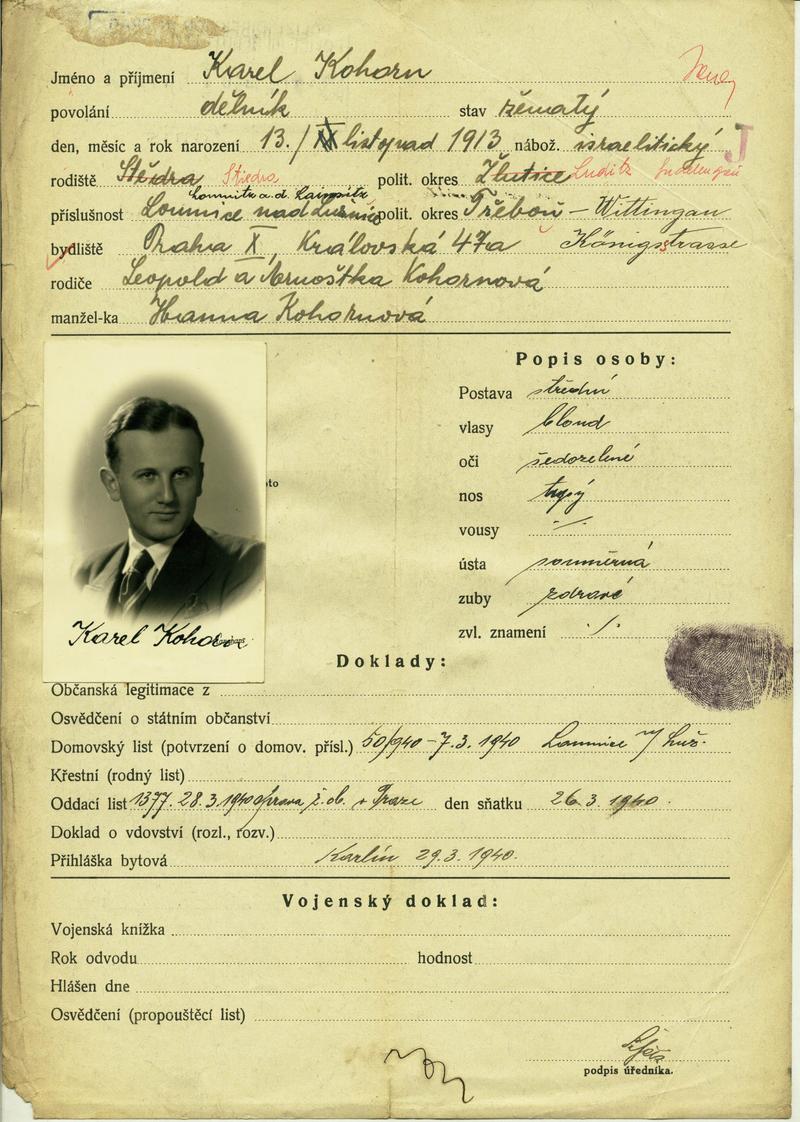 Jméno a příjmení Karel Kohorn
povolání dělník stav ženatý
den, měsíc a rok narození 13./ IX listopad 1913 nábož. israelitický J
rodiště Stědra Stiedra polit. okres Žlutice Luditz Sudetengau
Lomnitz a. d. Lainsitz
příslušnost Lomnice nad Lužnicí polit. okres Třeboň – Wittingau
bydliště Praha X, Královská 47a Königsstrasse
rodiče Leopold a Arnoštka Kohornová
manžel-ka Hanna Kohornová
Popis osoby:
Postava střední
vlasy blond
oči šedozelené
nos tupý
vousy ·/·
ústa souměrná
zuby zdravé
zvl. znamení ·/·
to
Karel Kohorn
Doklady:
Občanská legitimace z
Osvědčení o státním občanství
Domovský list (potvrzení o domov. přísl.) 50/940 – 7.3. 1940 Lomnice n/ Luž.
Křestní (rodný list)
Oddací list 1377. 28.3.1940 správa ž. ob. v Praze den sňatku 26.3. 1940.
Doklad o vdovství (rozl., rozv.)
Přihláška bytová Karlín 29.3. 1940.
Vojenský doklad:
Vojenská knížka
Rok odvodu hodnost
Hlášen dne
Osvědčení (propouštěcí list)
podpis úředníka.